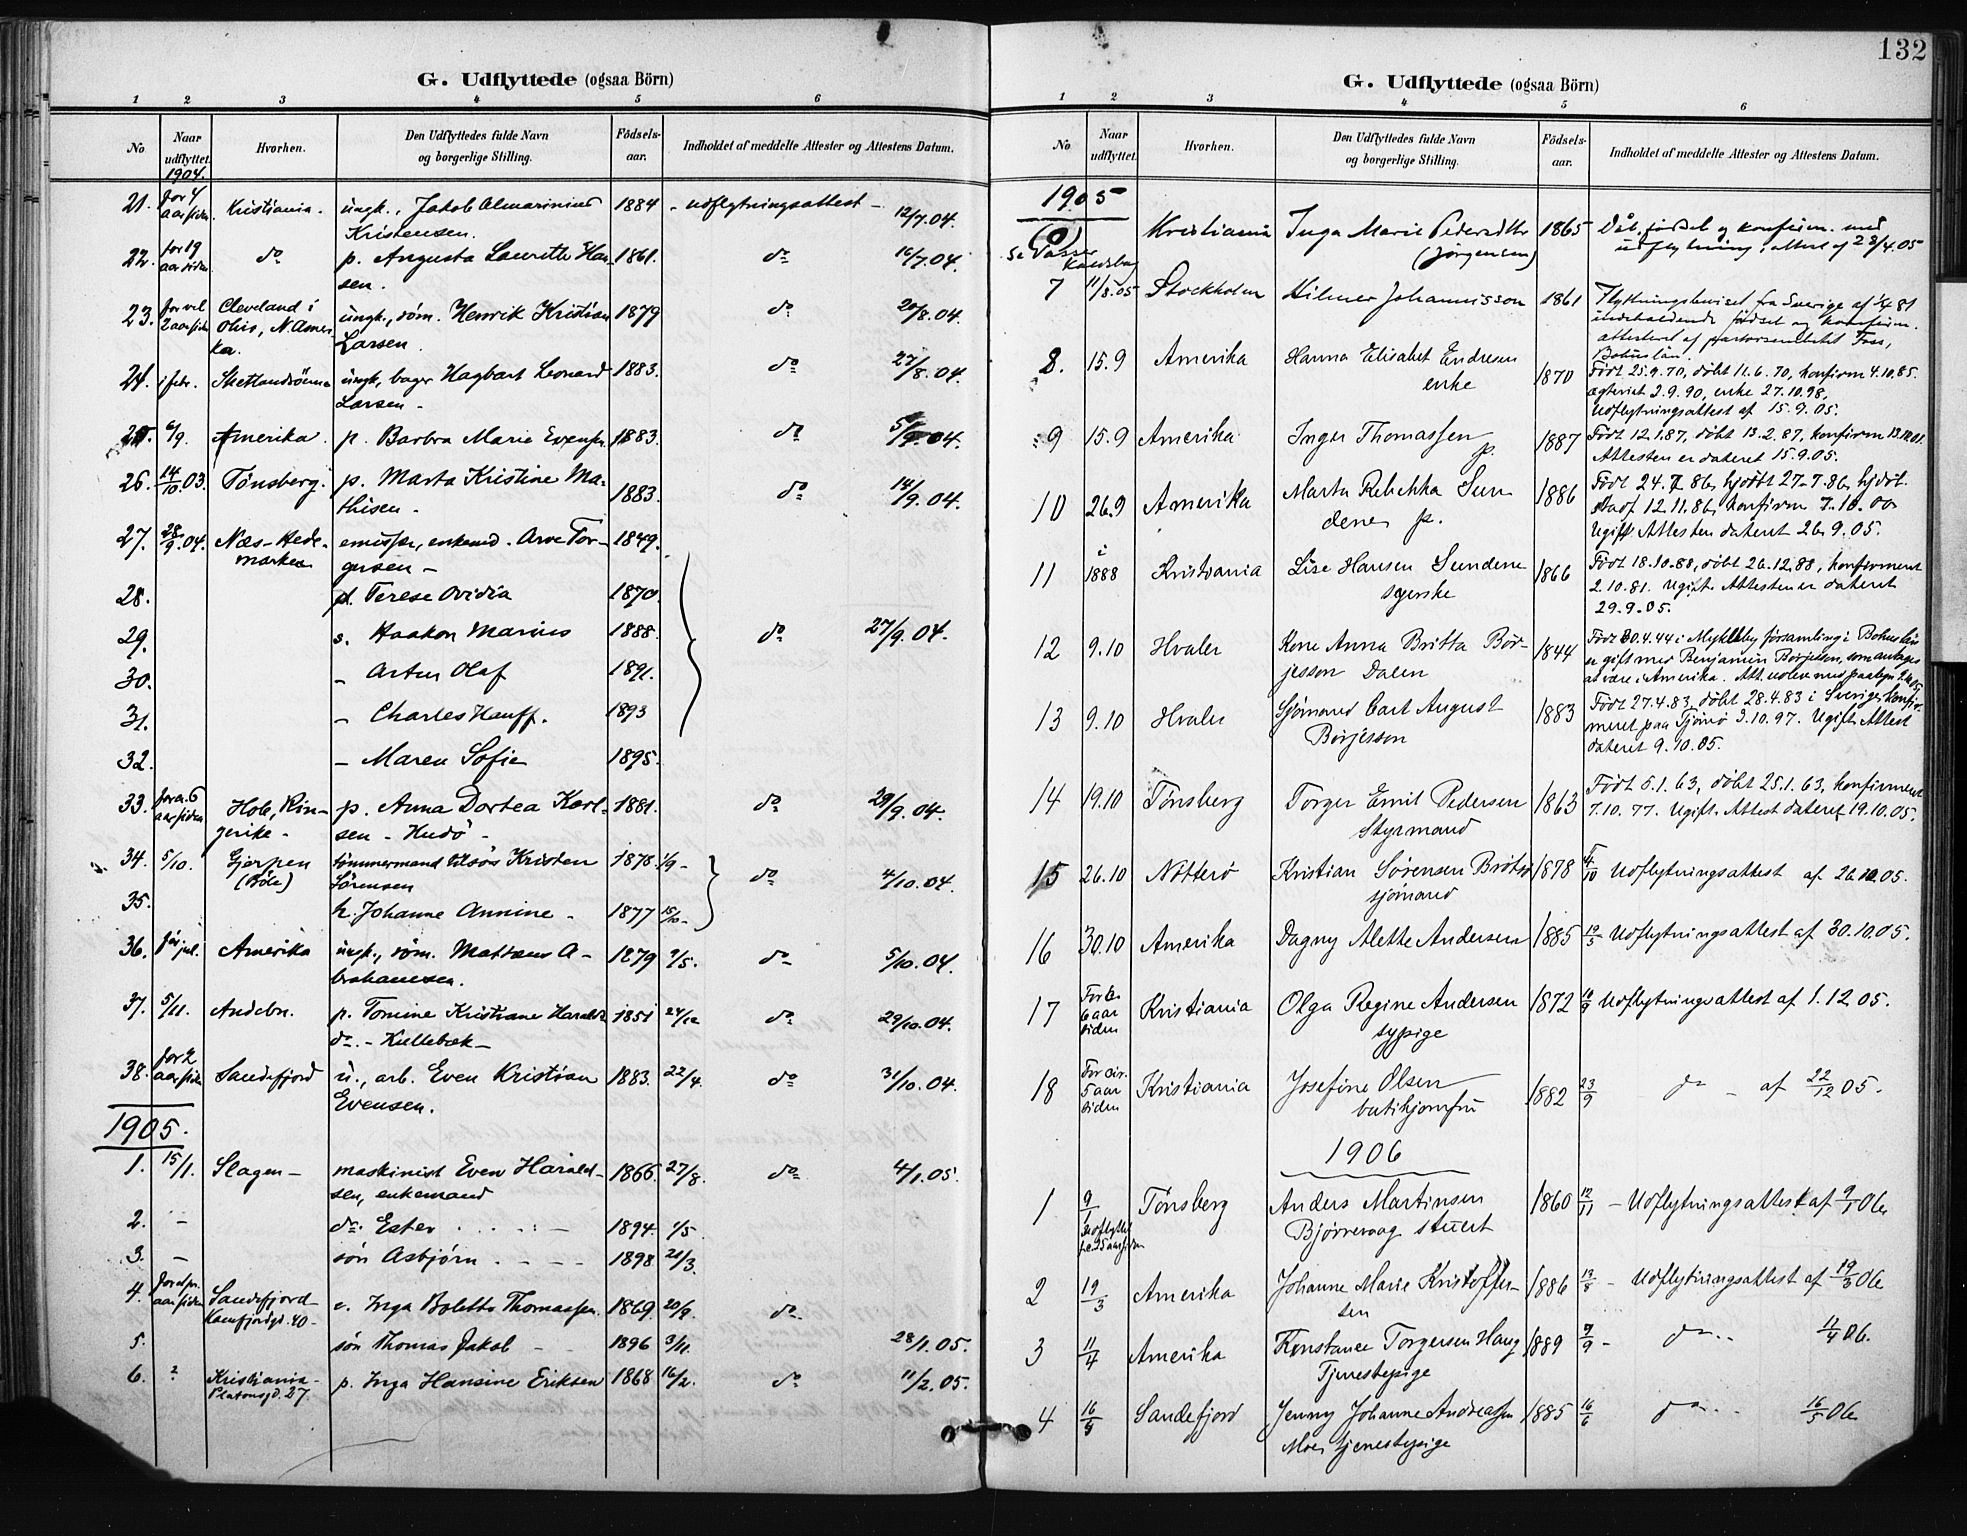 G. Udflyttede (ogsaa Börn)
1 2 3 4 5 6
No Naar udflyttet. Hvorhen. Den Udflyttedes fulde Navn og borgerlige Stilling. Födsels-aar. Indholdet af meddelte Attester og Attestens Datum.
1904.
21. for 4 aar siden Kristiania. ungk., Jakob Almarinius 1884 - udflytningsattest - 12/7.04.
Kristensen.
22. for 19 aar siden do p. Augusta Laurette Han- 1861. do 16/7.04.
sen.
23. 2 aar siden Cleveland i ungk., søm. Henrik Kristian 1879 do 20/8.04.
Ohio, N. Ameri- Larsen.
ka.
24. i febr. Shetlandsöerne ungk., bager Hagbart Leonard 1883. do 27/8.04.
Larsen -
25. 6/9. Amerika. p. Barbra Marie Evensen 1883. do 5/9.04.
26. 14/10.03. Tönsberg. p. Marta Kristine Ma- 1883. do 14/9.04.
thisen -
27. 28/9.04. Næs-Hede- enkemd. Arve Tor- 1849.
marken gersen -
28. d. Terese Ovidia 1870.
29. s. Haakon Marius 1888. do 27/9.04.
30. - Artur Olaf 1891.
31. - Charles Hauff. 1893
32. - Maren Sofie 1895.
33. for ca. 6 aar siden Hole, Rin- p. Anna Dortea Karl- 1881. do 29/9.04.
gerike - sen - Hudö -
34. 5/10. Gjerpen tömmermand Kristen 1878. 1/9- do 4/10.04.
(Böle) Sörensen
35. h. Johanne Annine - 1877 15/10-
36. jul. Amerika ungk., söm. Mattæus A- 1879 9/5. do 5/10.04.
brahamsen.
37. 5/11. Andebu. p. Tomine Kristiane Haralds- 1851 24/12 do 29/10.04.
dr. - Kullebæk -
38. for 2 aar siden Sandefjord u., arb. Even Kristian 1883. 22/4. do 31/10.04.
Evensen.
1905.
1. 15/1. Slagen - maskinist Even Harald- 1866. 27/8. do 4/1.05.
sen, enkemand
2. - dr. Ester 1894. 1/5.
3. - sön Asbjörn 1898. 21/3.
4. aar siden Sandefjord - e. Inga Bolette Thomassen 1869. 20/9. do
Kamfjordgd. 40-
5. sön Thomas Jakob - 1896 3/11. 28/1.05.
6. ? Kristiania - p. Inga Hansine Eriksen 1868 16/2. do 11/2.05.
Platousgd. 27.
132
G. Udflyttede (ogsaa Börn)
1 2 3 4 5 6
No Naar udflyttet. Hvorhen. Den Udflyttedes fulde Navn og borgerlige Stilling. Födsels-aar. Indholdet af meddelte Attester og Attestens Datum.
1905
Kristiania Inga Marie Pedersdtr 1865 Dåb, fødsel og konfirm. med
(Jørgensen) udflytning, attest af 28/4.05
7 11/8.05 Stockholm Hilmer Johannisson 1861 Flytningsbeviset fra Sverige af 81
indeholdende födsel og konfirm.
Bohuslän.
8. 15.9 Amerika Hanna Elisabet Endresen 1870 Født 25.9.70, døbt 11.6.70, konfirm 4.10.85.
enke ægteviet 2.9.90, enke 27.10.98,
Udflytningsattest af 15.9.05.
9 15.9 Amerika Inger Thomassen 1887 Født 12.1.87, døbt 13.2.87, konfirm 13.10.01.
p. Attesten er dateret 15.9.05.
10 26.9 Amerika Marta Rebekka Sun 1886 Født 24.7.86, hjdöbt 27.7.86, hjdöb.
dene p. stadf. 12.11.86, konfirm 7.10.00
Ugift. Attesten dateret 26.9.05.
11 i 1888 Kristiania Lise Hansen Sundene 1866 Født 18.10.88, døbt 26.12.88, konfirmeret
syerske 2.10.81. Ugift. Attesten er dateret
29.9.05.
12 9.10 Hvaler Kone Anna Britta Bör- 1844 Født 30.4.44 i Mykleby forsamling i Bohuslän
jesson Dalen er gift med Benjamin Børjesson, som antages
at være i Amerika.
13 9.10 Hvaler Sjömand Carl August 1883 Født 27.4.83, døbt 28.4.83 i Sverige, konfir-
Børjesson meret paa Tjömö 3.10.97. Ugift. Attest
dateret 9.10.05.
14 19.10 Tönsberg Torger Emil Pedersen 1863 Født 5.1.63, døbt 25.1.63, konfirmeret
Styrmand 7.10.77. Ugift. Attest dateret 19.10.05.
15 26.10 Nötterö Kristian Sörensen Brötsö 1878 Udflytningsattest af 26.10.05.
sjömand
16 30.10 Amerika Dagny Alette Andersen 1885 19/5 Udflytningsattest af 30.10.05.
17 For ca. 6 aar siden Kristiania Olga Regine Andersen 1872 Udflytningsattest af 1.12.05.
sypige
18 For cir. 5 aar siden Kristiania Josefine Olsen 1882 23/9 do - af 22/12 05.
butikjomfru
1906
1 9/1 Tönsberg Anders Martinsen 1860 12/11 - Udflytningsattest af 9/1 06
Udflyttet Bjørnevaag stuert
2 19/3 Amerika Johanne Marie Kristoffer- 1886 13/8 - Udflytningsattest af 19/3 06
sen
3 11/4 Amerika Konstance Torgersen Haug 1889 7/9 - do 11/4 06.
Tjenestepige
4 16/5 Sandefjord Jenny Johanne Andreassen 1885 16/6 do 16/5 06
Moe, tjenestepige